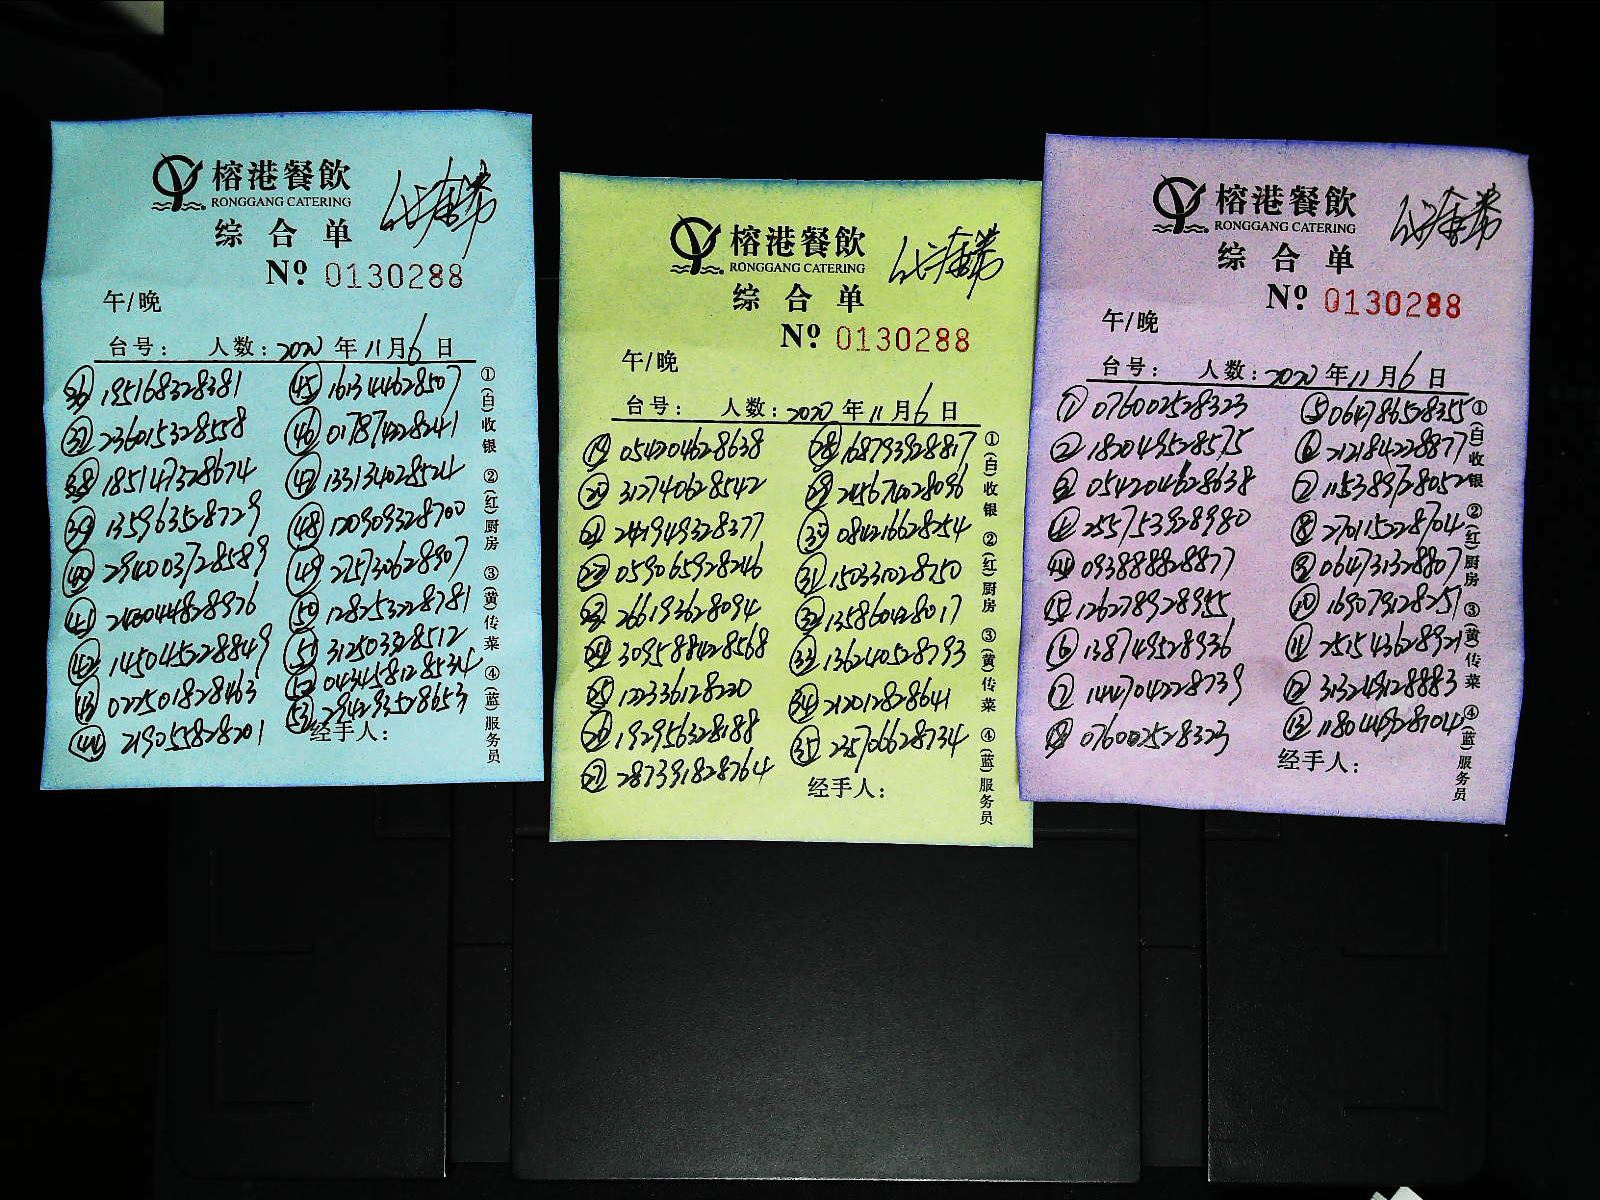 榕港餐飲
RONGGANG CATERING
综合单
Nº 0130288
午/晚
台号: 人数: 2020年11月6日
㊱ 195168328381
㊲ 236015328558
㊳ 185147328674
㊴ 135963528729
㊵ 294003728589
㊶ 240044828976
㊷ 145045228849
㊸ 022501828463
㊹ 219055828201
㊺ 161344628507
㊻ 017874228241
㊼ 133134028524
㊽ 120909328700
㊾ 2275730628907
㊿ 128253228781
51 312503328512
52 043458128534
53 294293528653
经手人:
①(白)收银 ②(红)厨房 ③(黄)传菜 ④(蓝)服务员
榕港餐飲
RONGGANG CATERING
综合单
Nº 0130288
午/晚
台号: 人数: 2020年11月6日
⑲ 054204628638
⑳ 312740628542
㉑ 241949328377
㉒ 059065928246
㉓ 266193628094
㉔ 309588428568
㉕ 122336128220
㉖ 192956328188
㉗ 287391828764
㉘ 168793928817
㉙ 245674028096
㉚ 084216628254
㉛ 150331028750
㉜ 135860428017
㉝ 136240528793
㉞ 212012828641
㉟ 235706628734
经手人:
①(白)收银 ②(红)厨房 ③(黄)传菜 ④(蓝)服务员
榕港餐飲
RONGGANG CATERING
综合单
Nº 0130288
午/晚
台号: 人数: 2020年11月6日
① 076002528323
② 182049528575
③ 054204628638
④ 255753928980
⑭ 093888828877
⑮ 126278928955
⑯ 138749528936
⑰ 144704228739
⑱ 076002528323
⑤ 064786528355
⑥ 212184228877
⑦ 115389728052
⑧ 270115228704
⑨ 064731328807
⑩ 169079128257
⑪ 251543628921
⑫ 313249128883
⑬ 118044928704
经手人:
①(白)收银 ②(红)厨房 ③(黄)传菜 ④(蓝)服务员